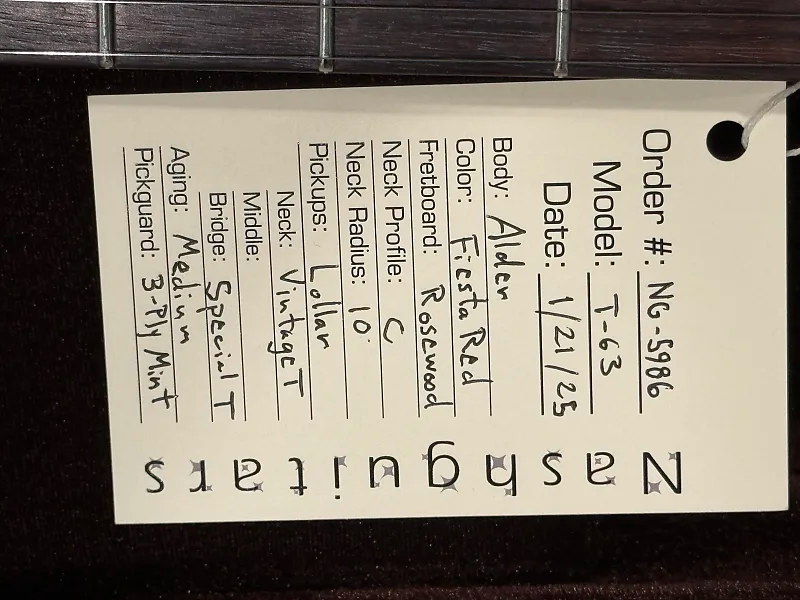 Order #: NG-5986
Model: T-63
Date: 1/21/25
Body: Alder
Color: Fiesta Red
Fretboard: Rosewood
Neck Profile: C
Neck Radius: 10"
Pickups: Lollar
Neck: Vintage T
Middle:
Bridge: Special T
Aging: Medium
Pickguard: 3-Ply Mint
Nash guitars